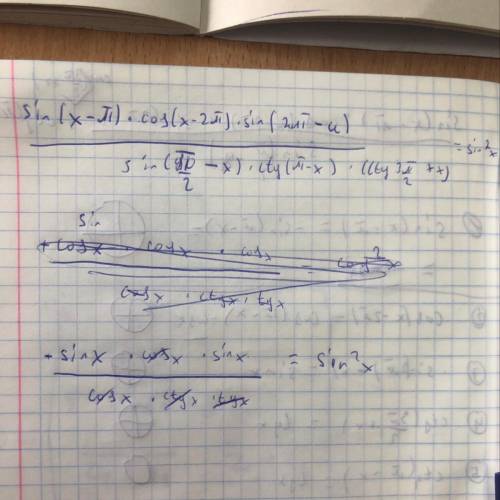 sin(x-π)·cos(x-2π)·sin(2π-x)
= sin²x
sin(π/2 - x)·ctg(π-x)·ctg(3π/2 + x)
sin
+ cosx · cosx · cosx = cos²x
cosx · ctgx · tgx
+ sinx · cosx · sinx = sin²x
cosx · ctgx · tgx